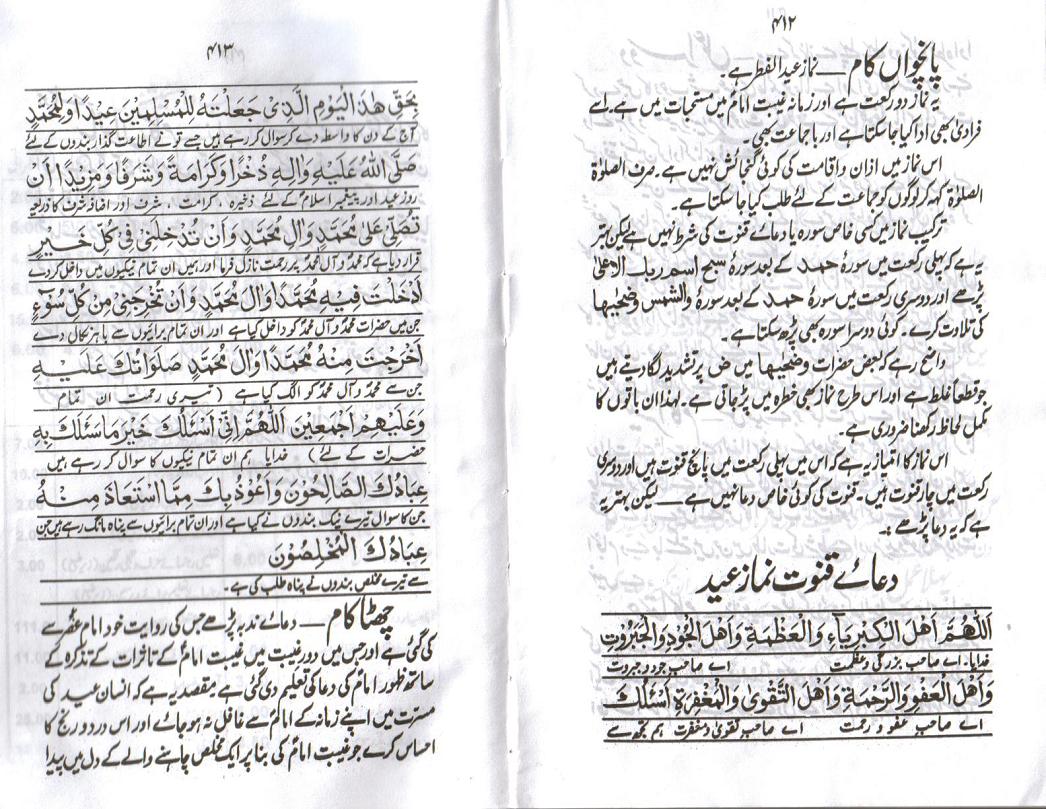 ۴۱۲
پانچواں کام ــــ نماز عید الفطر ہے۔
یہ نماز دو رکعت ہے اور زمانہ غیبت امامؑ میں مستحبات میں ہے۔ اسے
فرادیٰ بھی ادا کیا جا سکتا ہے اور با جماعت بھی۔
اس نماز میں اذان و اقامت کی کوئی گنجائش نہیں ہے۔ صرف الصلوٰۃ
الصلوٰۃ کہہ کر لوگوں کو جماعت کے لئے طلب کیا جا سکتا ہے۔
ترکیب نماز میں کسی خاص سورہ یا دعائے قنوت کی شرط نہیں ہے لیکن بہتر
یہ ہے کہ پہلی رکعت میں سورۂ حمد کے بعد سورۂ سبح اسم ربک الاعلیٰ
پڑھے اور دوسری رکعت میں سورۂ حمد کے بعد سورۂ والشمس وضحٰیہا
کی تلاوت کرے۔ کوئی دوسرا سورہ بھی پڑھ سکتا ہے۔
واضح رہے کہ بعض حضرات وضحٰیہا میں ض پر تشدید لگا دیتے ہیں
جو قطعاً غلط ہے اور اس طرح نماز بھی خطرہ میں پڑ جاتی ہے۔ لہذا ان باتوں کا
مکمل لحاظ رکھنا ضروری ہے۔
اس نماز کا امتیاز یہ ہے کہ اس میں پہلی رکعت میں پانچ قنوت ہیں اور دوسری
رکعت میں چار قنوت ہیں۔ قنوت کی کوئی خاص دعا نہیں ہے ــــ لیکن بہتر یہ
ہے کہ یہ دعا پڑھے :۔
دعائے قنوت نماز عید
اَللّٰهُمَّ اَهْلَ الْكِبْرِيَآءِ وَالْعَظَمَةِ وَاَهْلَ الْجُوْدِ وَالْجَبَرُوْتِ
خدایا۔ اے صاحب بزرگی و عظمت اے صاحب جود و جبروت
وَاَهْلَ الْعَفْوِ وَالرَّحْمَةِ وَاَهْلَ التَّقْوٰى وَالْمَغْفِرَةِ اَسْئَلُكَ
اے صاحب عفو و رحمت اے صاحب تقویٰ و مغفرت ہم تجھ سے
۴۱۳
بِحَقِّ هٰذَا الْيَوْمِ الَّذِىْ جَعَلْتَهُ لِلْمُسْلِمِيْنَ عِيْدًا وَلِمُحَمَّدٍ
آج کے دن کا واسطہ دے کر سوال کر رہے ہیں جسے تو نے اطاعت گذار بندوں کے لئے
صَلَّى اللهُ عَلَيْهِ وَاٰلِهِ ذُخْرًا وَكَرَامَةً وَشَرَفًا وَمَزِيْدًا اَنْ
روز عید اور پیغمبر اسلام کے لئے ذخیرہ ، کرامت ، شرف اور اضافہ شرف کا ذریعہ
تُصَلِّىَ عَلٰى مُحَمَّدٍ وَاٰلِ مُحَمَّدٍ وَاَنْ تُدْخِلَنِىْ فِىْ كُلِّ خَيْرٍ
قرار دیا ہے کہ محمد و آل محمد پر رحمت نازل فرما اور ہمیں ان تمام نیکیوں میں داخل کر دے
اَدْخَلْتَ فِيْهِ مُحَمَّدًا وَاٰلَ مُحَمَّدٍ وَاَنْ تُخْرِجَنِىْ مِنْ كُلِّ سُوْٓءٍ
جن میں حضرات محمد و آل محمد کو داخل کیا ہے اور ان تمام برائیوں سے باہر نکال دے
اَخْرَجْتَ مِنْهُ مُحَمَّدًا وَاٰلَ مُحَمَّدٍ صَلَوَاتُكَ عَلَيْهِ
جن سے محمد و آل محمد کو الگ کیا ہے (تیری رحمت ان تمام
وَعَلَيْهِمْ اَجْمَعِيْنَ اَللّٰهُمَّ اِنِّىْ اَسْئَلُكَ خَيْرَ مَا سَئَلَكَ بِهِ
حضرات کے لئے) خدایا ہم ان تمام نیکیوں کا سوال کر رہے ہیں
عِبَادُكَ الصَّالِحُوْنَ وَاَعُوْذُ بِكَ مِمَّا اسْتَعَاذَ مِنْهُ
جن کا سوال تیرے نیک بندوں نے کیا ہے اور ان تمام برائیوں سے پناہ مانگ رہے ہیں جن
عِبَادُكَ الْمُخْلِصُوْنَ
سے تیرے مخلص بندوں نے پناہ طلب کی ہے۔
چھٹا کام ــــ دعائے ندبہ پڑھے جس کی روایت خود امام عصرؑ سے
کی گئی ہے اور جس میں دور غیبت میں غیبت امامؑ کے تاثرات کے تذکرہ کے
ساتھ ظہور امامؑ کی دعا کی تعلیم دی گئی ہے مقصد یہ ہے کہ انسان عید کی
مسرت میں اپنے زمانہ کے امامؑ سے غافل نہ ہو جائے اور اس درد و رنج کا
احساس کرے جو غیبت امامؑ کی بنا پر ایک مخلص چاہنے والے کے دل میں پیدا